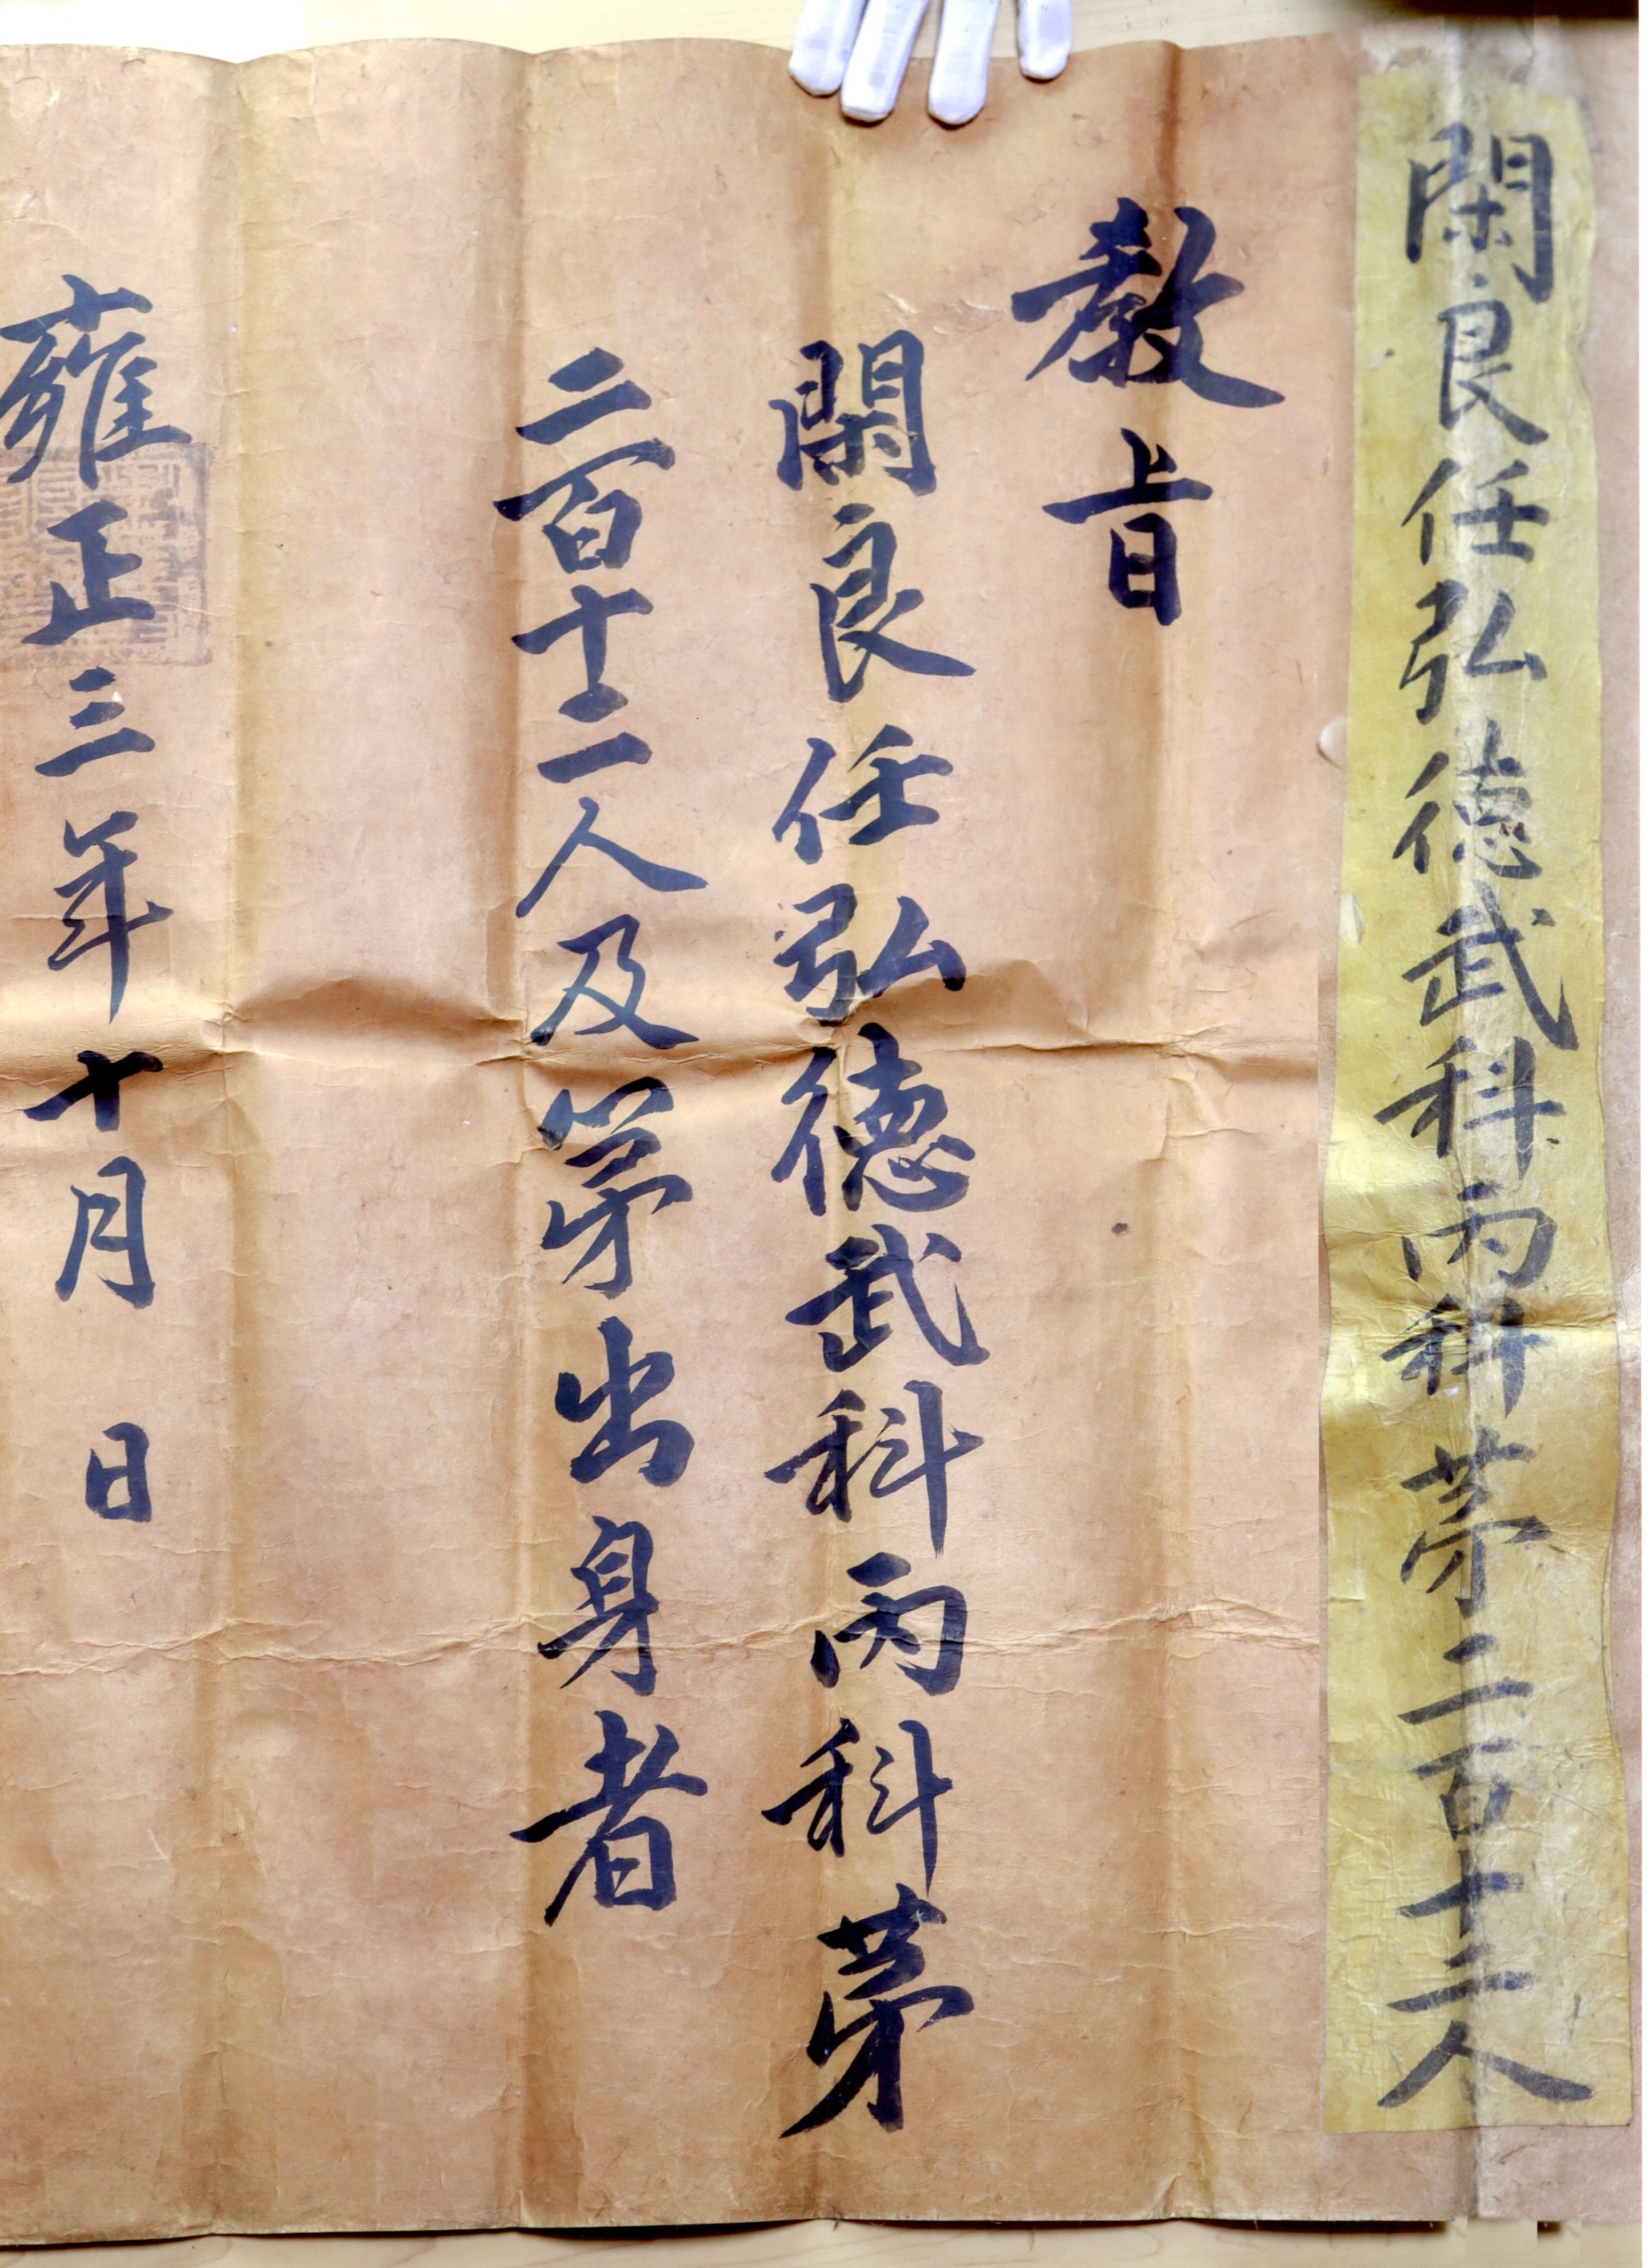 閑良任弘德武科丙科第二百十二人
教旨
閑良任弘德武科丙科第
二百十二人及第出身者
雍正三年十月 日